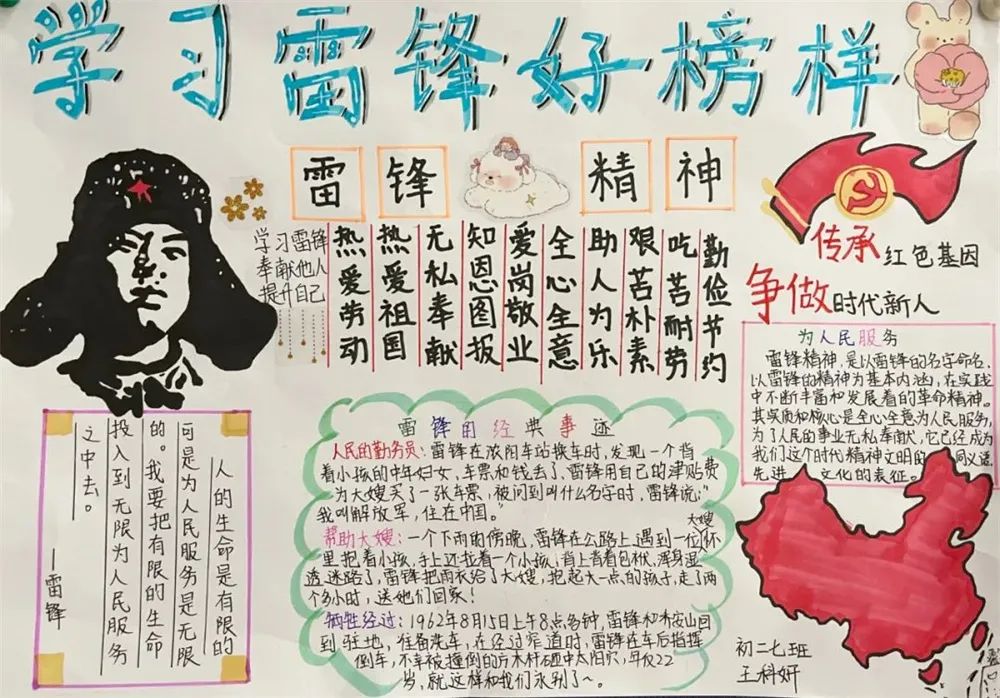 学习雷锋好榜样
雷锋精神
学习雷锋
奉献他人
提升自己
热爱劳动
热爱祖国
无私奉献
知恩图报
爱岗敬业
全心全意
助人为乐
艰苦朴素
吃苦耐劳
勤俭节约
传承红色基因
争做时代新人
为人民服务
雷锋精神,是以雷锋的名字命名,
以雷锋的精神为基本内涵,在实践
中不断丰富和发展着的革命精神。
其实质和核心是全心全意为人民服务,
为了人民的事业无私奉献,它已经成为
我们这个时代精神文明的同义词
先进文化的表征。
人的生命是有限的
可是为人民服务是无限
的。我要把有限的生命
投入到无限为人民服务
之中去。
——雷锋
雷锋的经典事迹
人民的勤务员:雷锋在沈阳车站换车时,发现一个背
着小孩的中年妇女,车票和钱丢了,雷锋用自己的津贴费
为大嫂买了一张车票,被问到叫什么名字时,雷锋说:“
我叫解放军,住在中国。”
帮助大嫂:一个下雨的傍晚,雷锋在公路上遇到一位大嫂怀
里抱着小孩,手上还拉着一个小孩,背上背着包袱,浑身湿
透迷路了,雷锋把雨衣给了大嫂,抱起大一点的孩子,走了两
个多小时,送她们回家!
牺牲经过:1962年8月15日上午8点多钟,雷锋和乔安山回
到驻地,准备洗车,在经过窄道时,雷锋在车后指挥
倒车,不幸被撞倒的方木杆砸中太阳穴,年仅22
岁,就这样和我们永别了~。
初二七班
王科妍